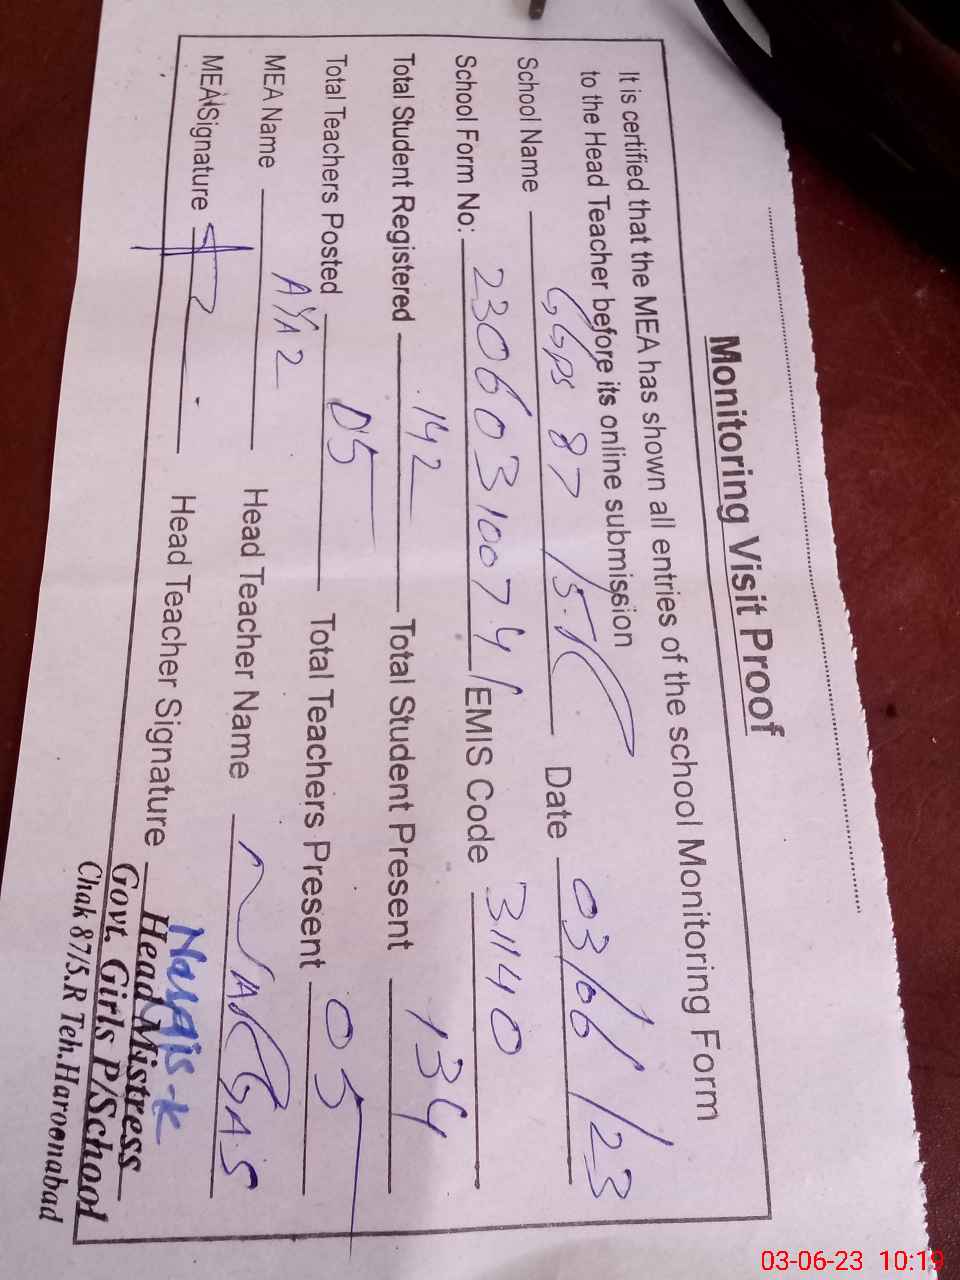 Monitoring Visit Proof
It is certified that the MEA has shown all entries of the school Monitoring Form
to the Head Teacher before its online submission
School Name GGPS 87/5.R Date 03/06/23
School Form No: 23060310074 EMIS Code 31140
Total Student Registered 142 Total Student Present 134
Total Teachers Posted 05 Total Teachers Present 05
MEA Name Head Teacher Name NARGAS
MEA Signature Head Teacher Signature Nargis-k
Head Mistress
Govt. Girls P/School
Chak 87/5.R Teh.Haroonabad
03-06-23 10:19